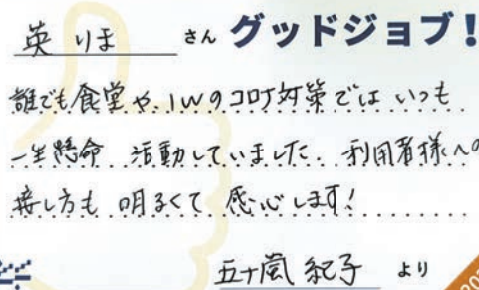 英 りま さん グッドジョブ!
誰でも食堂や、IWのコロナ対策では いつも
一生懸命 活動していました. 利用者様への
接し方も 明るくて 感心します!
五十嵐 紀子 より
202